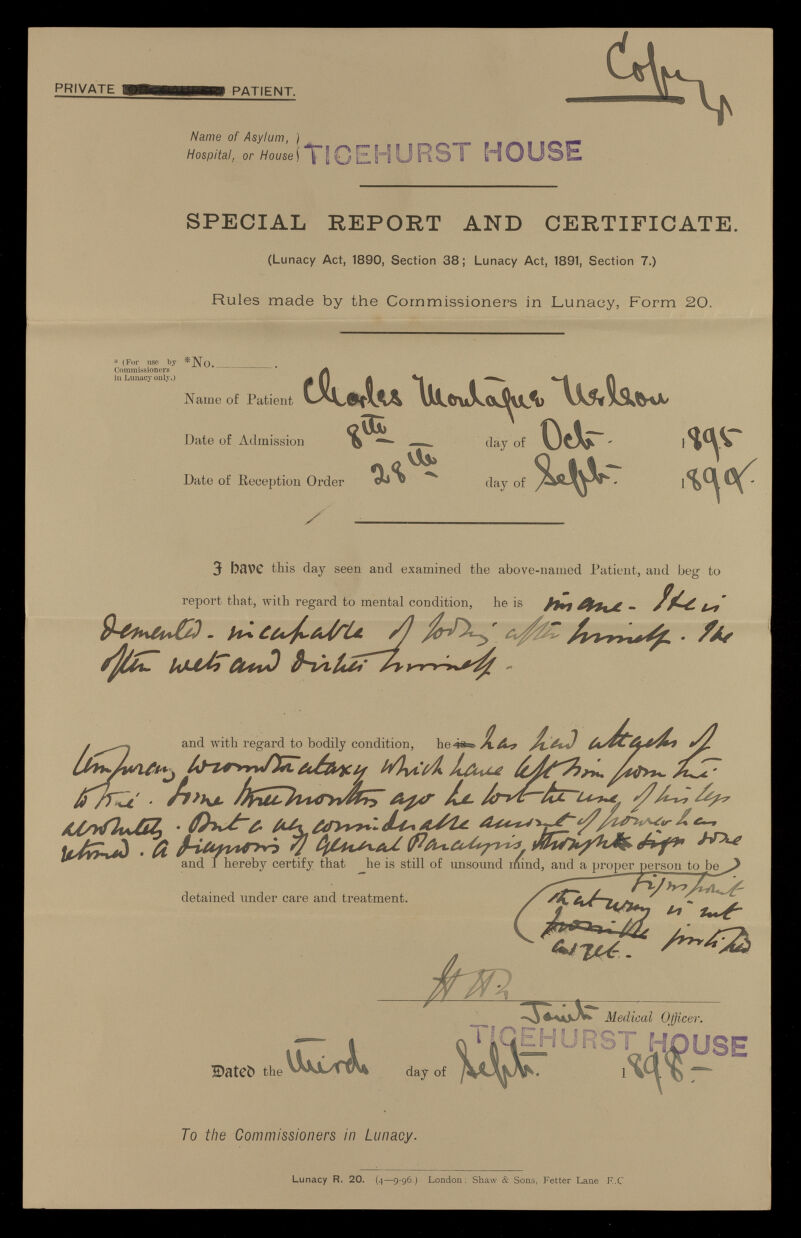 Copy
PRIVATE PATIENT.
Name of Asylum,
Hospital, or House
TICEHURST HOUSE
SPECIAL REPORT AND CERTIFICATE.
(Lunacy Act, 1890, Section 38; Lunacy Act, 1891, Section 7.)
Rules made by the Commissioners in Lunacy, Form 20.
* (For use by
Commissioners
in Lunacy only.)
*No.
Name of Patient Charles Montague
Date of Admission 8th day of Oct. 1895
Date of Reception Order 28th day of Sept. 189
I have this day seen and examined the above-named Patient, and beg to
report that, with regard to mental condition, he is insane - He is
demented - incapable of looking after himself. He
often wets and dirties himself -
and with regard to bodily condition, he is has had attacks of
temporary locomotor ataxy which have left him from time
to time. Some three months ago he lost the use of his legs
absolutely. But a very considerable amount of power has
returned. A diagnosis of General Paralysis, though some
and I hereby certify that he is still of unsound mind, and a proper person to be
detained under care and treatment.
signs point
that way is not
possible justified
as yet.
Joint Medical Officer.
TICEHURST HOUSE
Dated the third day of Sept. 1898 -
To the Commissioners in Lunacy.
Lunacy R. 20. (4—9-96.) London: Shaw & Sons, Fetter Lane E.C